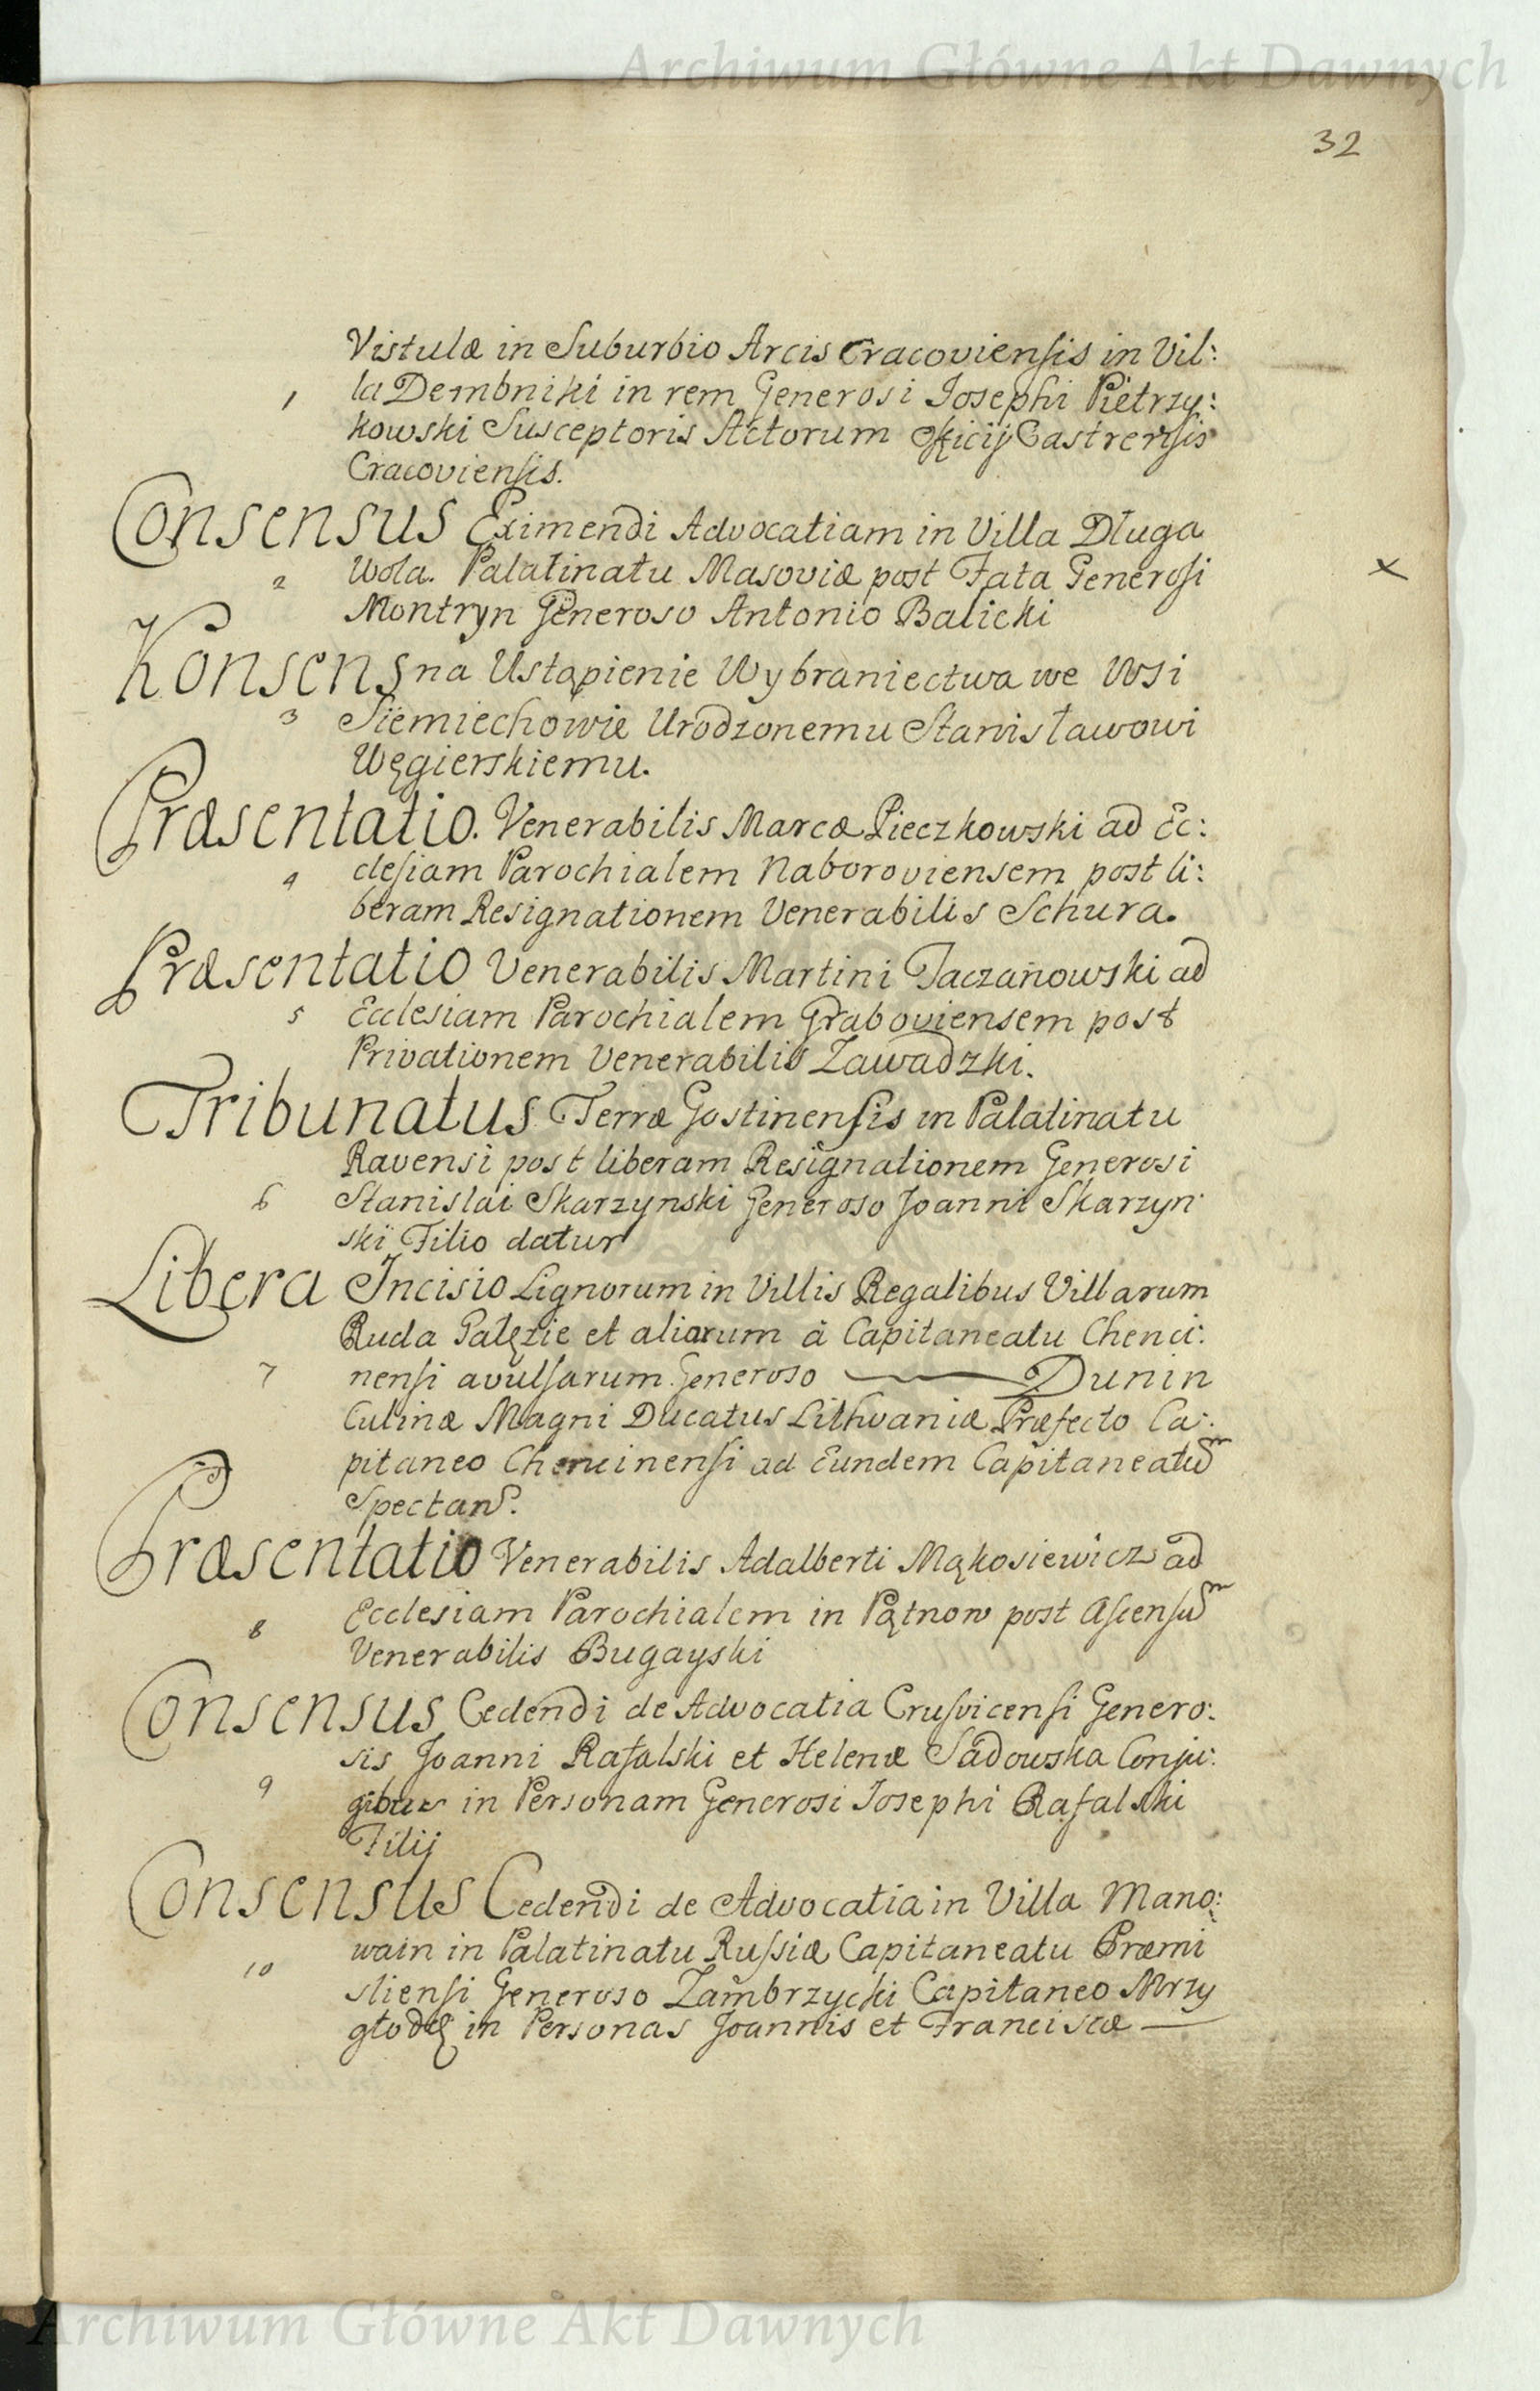 Archiwum Główne Akt Dawnych
32
Vistulæ in Suburbio Arcis Cracoviensis in Vil:
1 la Dembniki in rem Generosi Josephi Pietrzy:
kowski Susceptoris Actorum Officij Castrensis
Cracoviensis.
Consensus Eximendi Advocatiam in Villa Długa
2 Wola. Palatinatu Masoviæ post Fata Generosi
Montryn Generoso Antonio Balicki
Konsens na Ustąpienie Wybraniectwa we Wsi
3 Siemiechowie Urodzonemu Stanisławowi
Węgierskiemu.
Præsentatio. Venerabilis Marcæ Pieczkowski ad Ec:
4 clesiam Parochialem Naboroviensem post li:
beram Resignationem Venerabilis Schura.
Præsentatio Venerabilis Martini Taczanowski ad
5 Ecclesiam Parochialem Graboviensem post
Privationem Venerabilis Zawadzki.
Tribunatus Terræ Gostinensis in Palatinatu
Ravensi post liberam Resignationem Generosi
6 Stanislai Skarzynski Generoso Joanni Skarzyn
ski Filio datur
Libera Incisio Lignorum in Villis Regalibus Villarum
Ruda Gałęzie et aliarum à Capitaneatu Chenci:
7 nensi avulsarum Generoso — Dunin
Culinæ Magni Ducatus Lithvaniæ Præfecto Ca:
pitaneo Chencinensi ad Eundem Capitaneatum
Spectan.
Præsentatio Venerabilis Adalberti Mąkosiewicz ad
8 Ecclesiam Parochialem in Pątnow post Ascensum
Venerabilis Bugayski
Consensus Cedendi de Advocatia Crusvicensi Genero:
sis Joanni Rafalski et Helenæ Sadowska Conju:
9 gibus in Personam Generosi Josephi Rafalski
Filij
Consensus Cedendi de Advocatia in Villa Mano:
wain in Palatinatu Russiæ Capitaneatu Præmi
10 sliensi Generoso Zambrzycki Capitaneo Mrzy
głod in Personas Joannis et Franciscæ —
Archiwum Główne Akt Dawnych